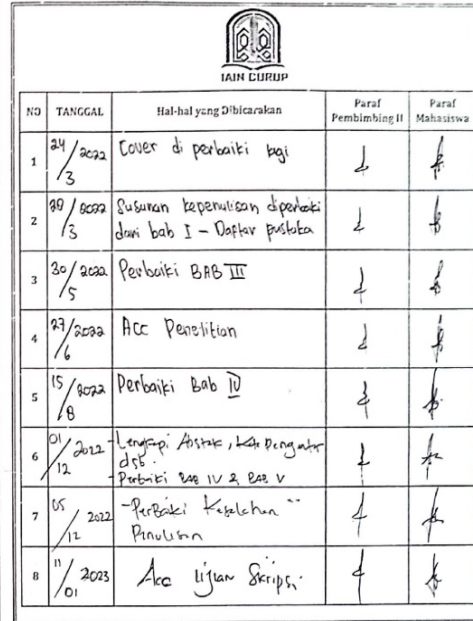 IAIN CURUP
NO TANGGAL Hal-hal yang Dibicarakan Paraf Pembimbing II Paraf Mahasiswa
1 24/3 2022 Cover di perbaiki lagi
2 /3 2022 Susunan kepenulisan diperbaiki
dari bab I - Daftar pustaka
3 30/5 2022 Perbaiki BAB III
4 27/6 2022 Acc Penelitian
5 15/8 2022 Perbaiki Bab IV
6 01/12 2022 - Lengkapi Abstrak, Kata Pengantar
dsb.
- Perbaiki BAB IV & BAB V
7 05/12 2022 - Perbaiki Kesalahan
Penulisan
8 11/01 2023 Acc Ujian Skripsi.